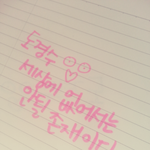 도경수
세상에 없어서는
안될 존재이다